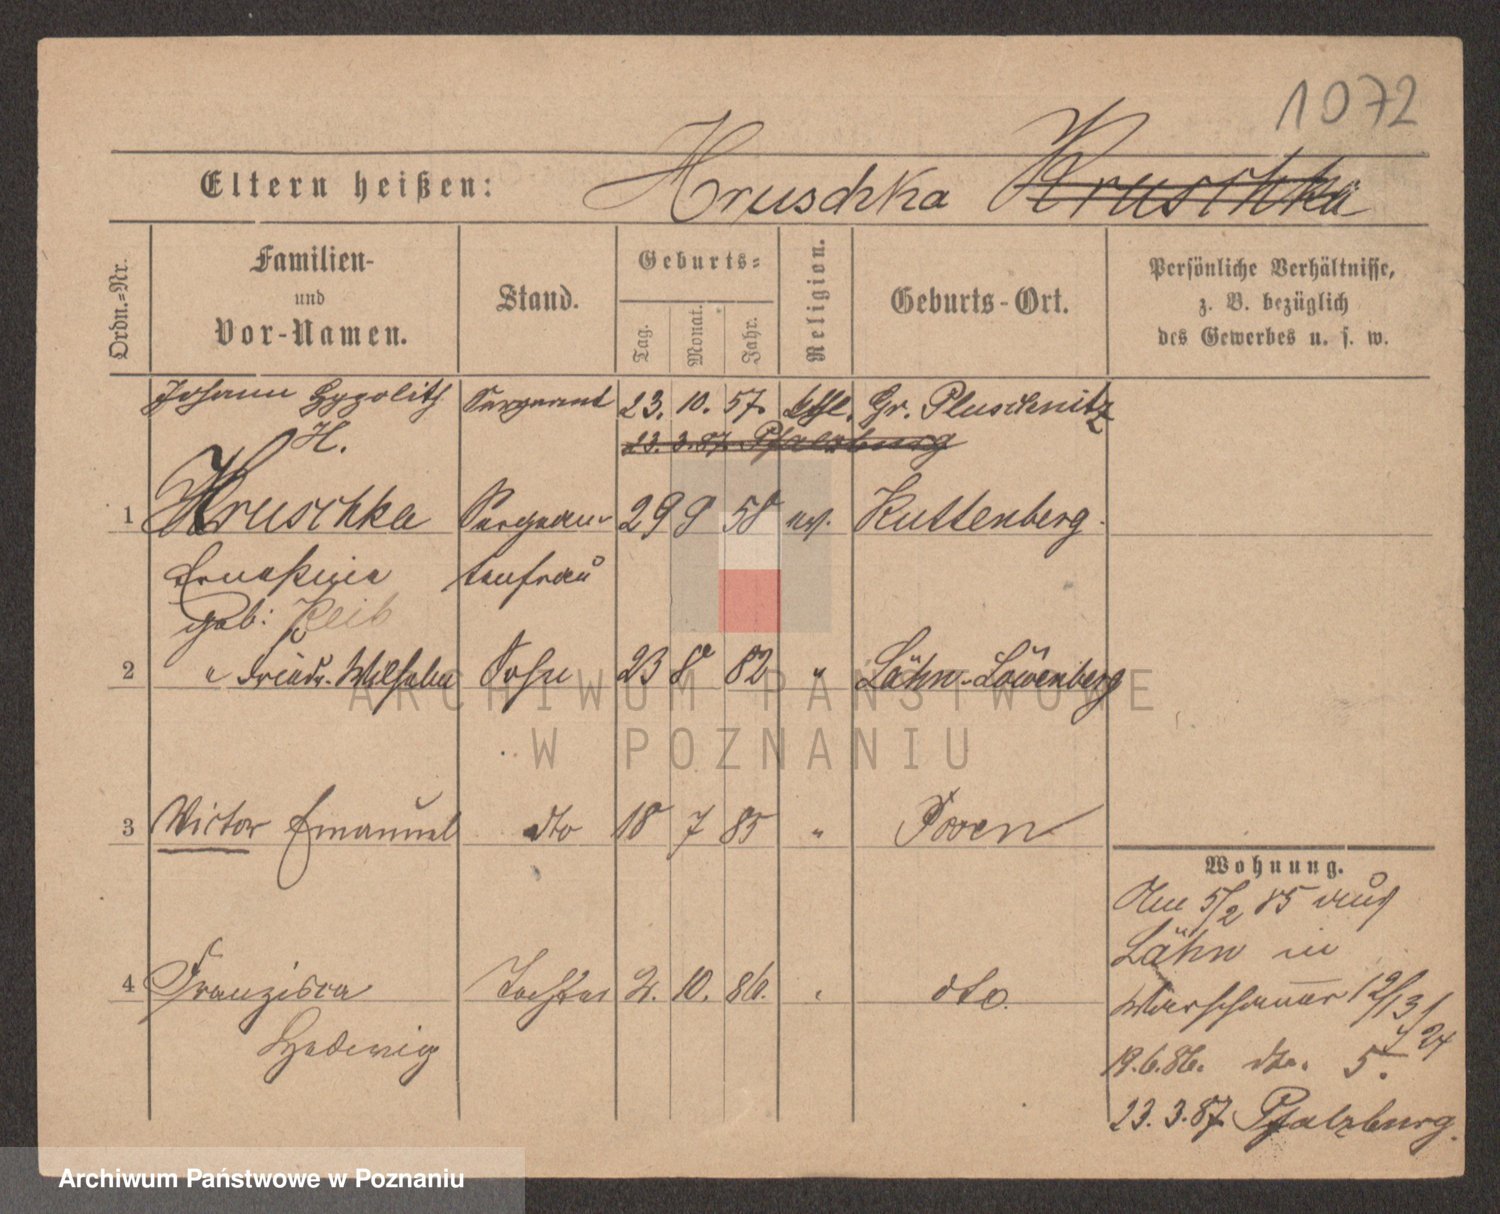 1072
Eltern heißen: Hruschka Kruschka
Ordn.=Nr.
Familien-
und
Vor-Namen.
Stand.
Geburts=
Tag.
Monat.
Jahr.
Religion.
Geburts-Ort.
Persönliche Verhältnisse,
z. B. bezüglich
des Gewerbes u. s. w.
Johann Hypolith Sergeant 23. 10. 57. kthl. Gr. Pluschnitz
H. 23. 3. 87. Pfalzburg
1 Hruschka Sergean- 29 9 58 ev. Kuttenberg.
Ernestine tenfrau
geb:
2 " Friedr. Wilhelm Sohn 23 8 82 " Lähn-Löwenberg
3 Victor Emanuel dto 18 7 85 " Posen
Wohnung.
Am 5/2 85 aus
Lähn in
4 Franziska Tochter 2. 10. 86. " dto.
Warschauer 12/13
Hedwig
19.6.86. dto. 5.
23. 3. 87. Pfalzburg.
ARCHIWUM PAŃSTWOWE
W POZNANIU
Archiwum Państwowe w Poznaniu